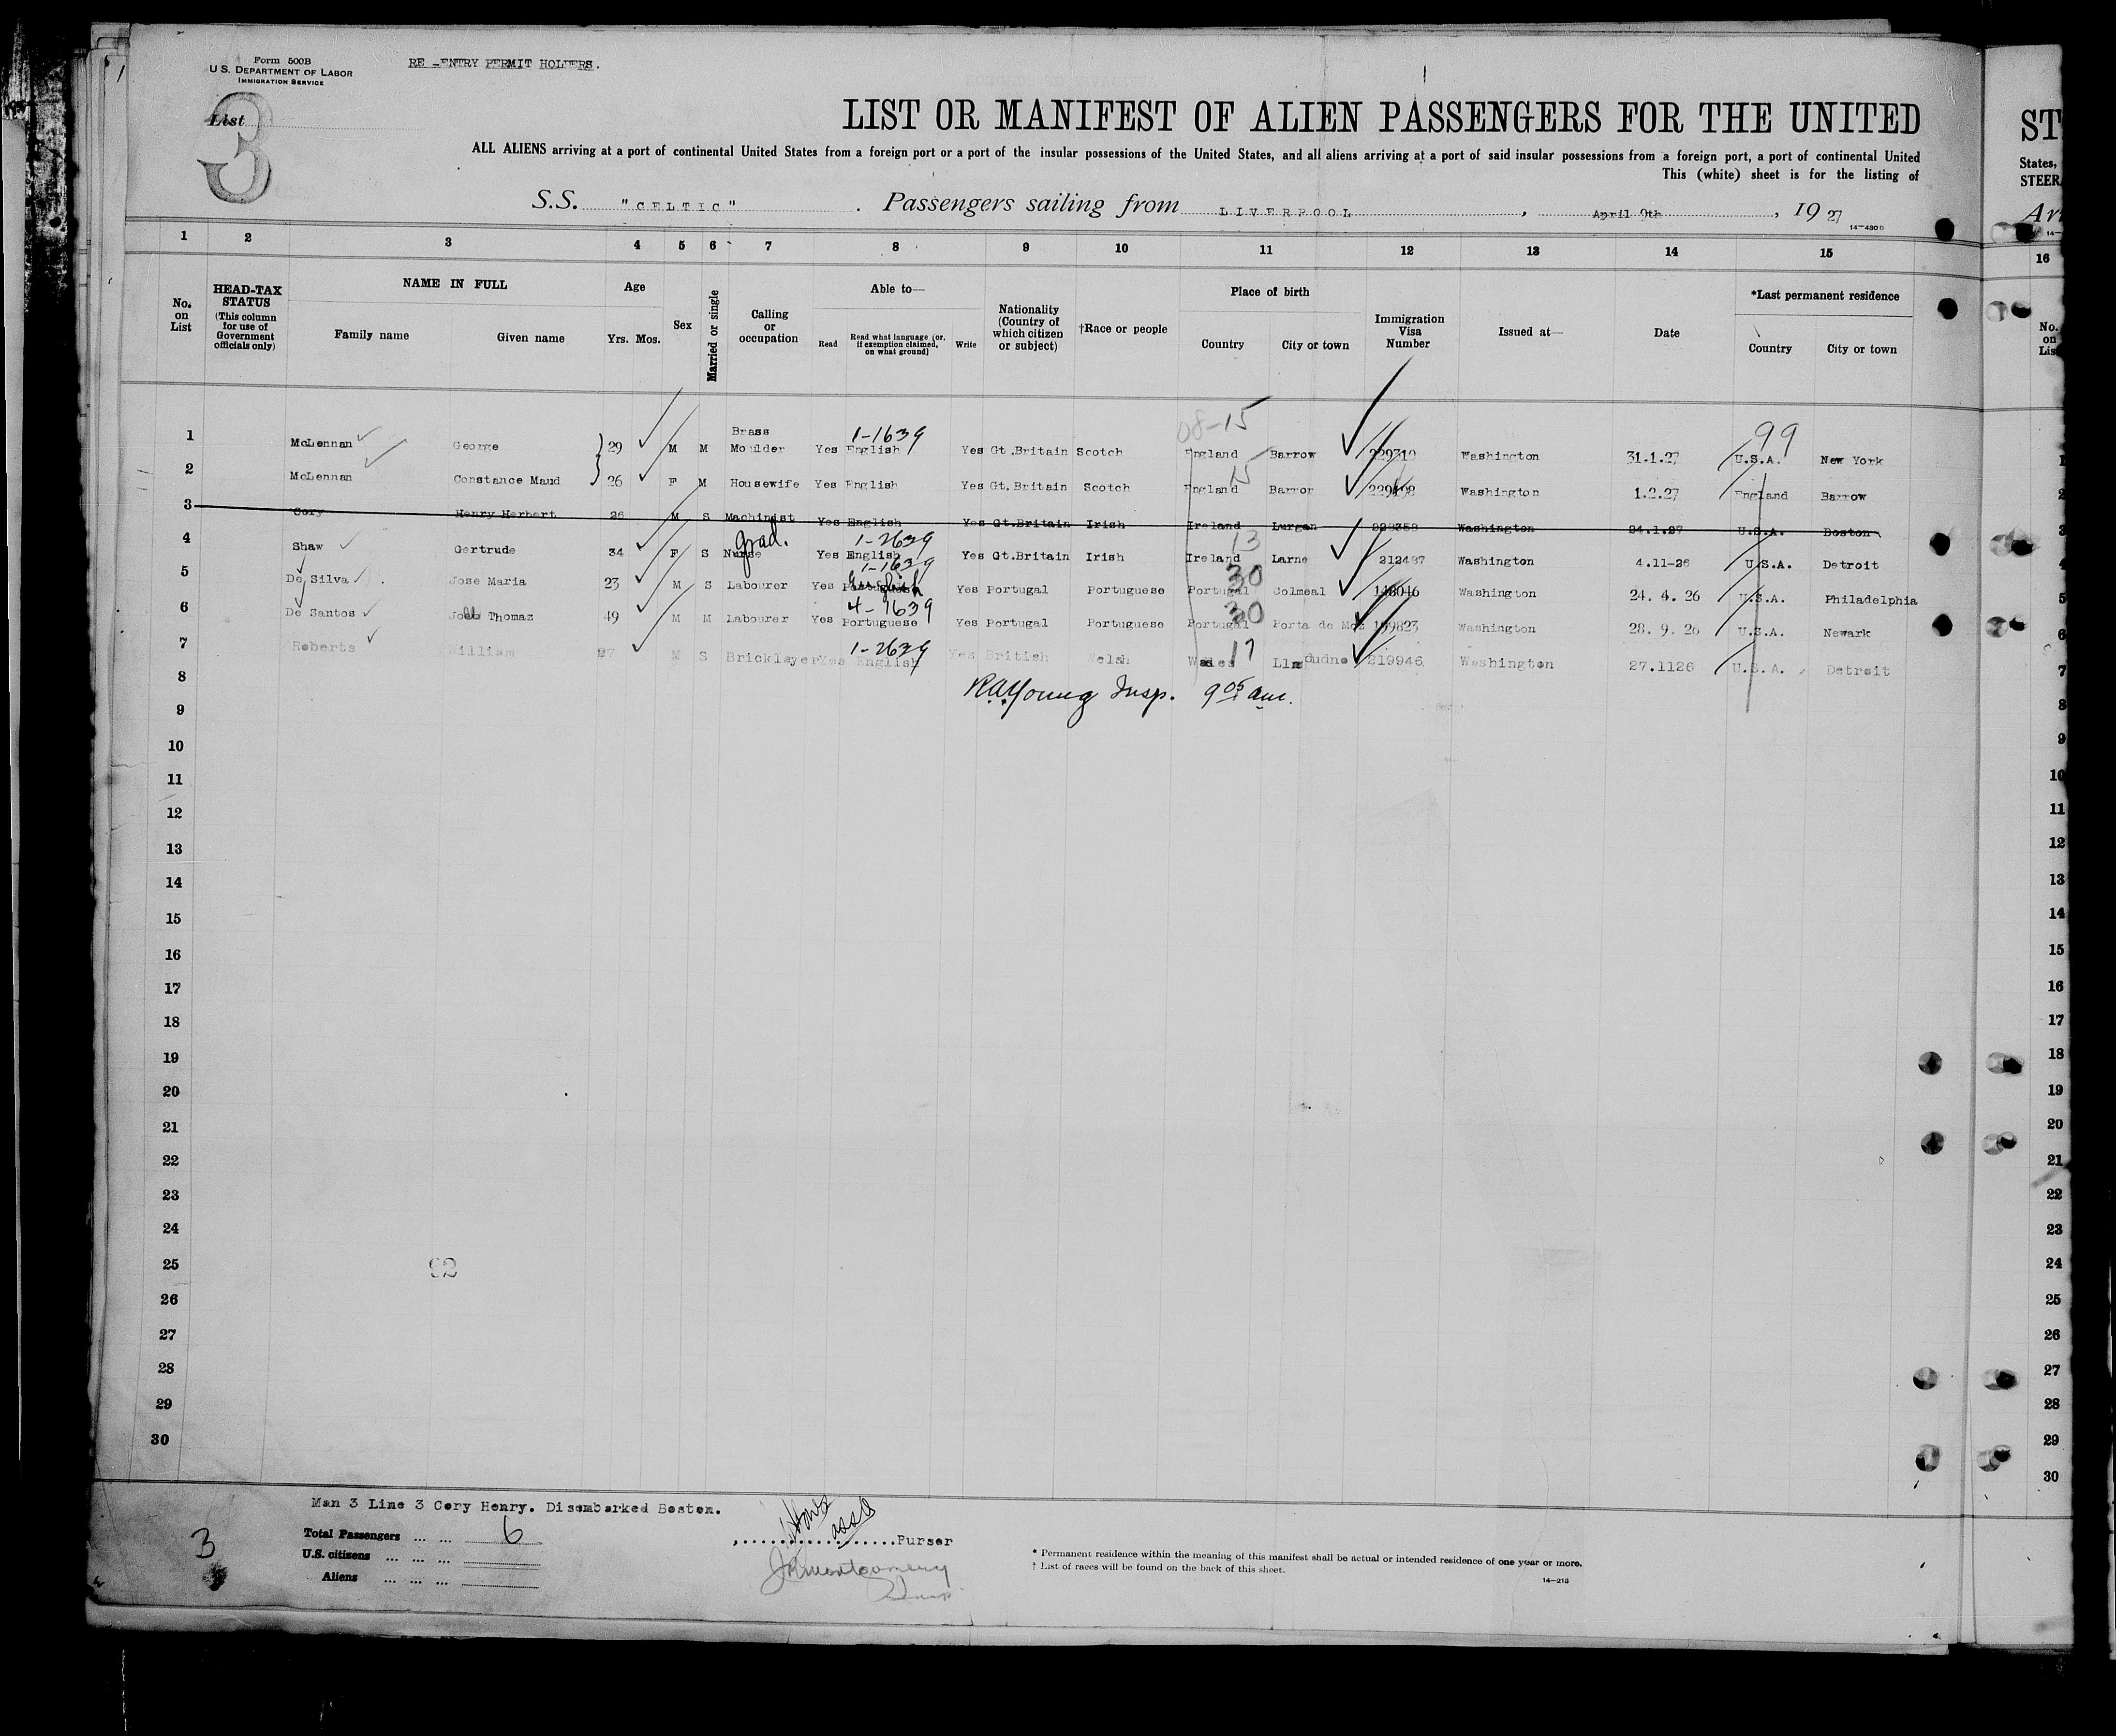 Form 500B
U.S. DEPARTMENT OF LABOR
IMMIGRATION SERVICE
RE-ENTRY PERMIT HOLDERS.
List
3
LIST OR MANIFEST OF ALIEN PASSENGERS FOR THE UNITED
ST
ALL ALIENS arriving at a port of continental United States from a foreign port or a port of the insular possessions of the United States, and all aliens arriving at a port of said insular possessions from a foreign port, a port of continental United
States,
This (white) sheet is for the listing of
STEER
S.S. "CELTIC". Passengers sailing from LIVERPOOL, April 9th, 1927
14-430B
1 2 3 4 5 6 7 8 9 10 11 12 13 14 15 16
No. on List
HEAD-TAX STATUS (This column for use of Government officials only)
NAME IN FULL
Family name Given name
Age
Yrs. Mos.
Sex
Married or single
Calling or occupation
Able to—
Read Read what language (or, if exemption claimed, on what ground) Write
Nationality (Country of which citizen or subject)
†Race or people
Place of birth
Country City or town
Immigration Visa Number
Issued at—
Date
*Last permanent residence
Country City or town
08-15 99
1 McLennan George 29 M M Brass Moulder Yes English 1-1639 Yes Gt.Britain Scotch England Barrow 229310 Washington 31.1.27 U.S.A. New York
2 McLennan Constance Maud 26 F M Housewife Yes English Yes Gt.Britain Scotch England 15 Barror Washington 1.2.27 England Barrow
3 Cory Henry Herbert 26 M S Machinist Yes English Yes Gt.Britain Irish Ireland Lurgan Washington 24.1.27 U.S.A. Boston
4 Shaw Gertrude 34 F S grad. Nurse Yes English 1-2639 Yes Gt.Britain Irish Ireland 13 Larne 212487 Washington 4.11-26 U.S.A. Detroit
5 De Silva Jose Maria 23 M S Labourer Yes Portuguese English 1-1639 Yes Portugal Portuguese Portugal 30 Colmeal 148046 Washington 24. 4. 26 U.S.A. Philadelphia
6 De Santos Thomaz 49 M M Labourer Yes Portuguese 4-1639 Yes Portugal Portuguese Portugal 30 Porta de Moz 199823 Washington 28. 9. 26 U.S.A. Newark
7 Roberts William 27 M S Bricklayer Yes English 1-2639 Yes British Welsh Wales 17 Llandudno 219946 Washington 27.1126 U.S.A. Detroit
8 R.A. Young Insp. 9 05 am.
9
10
11
12
13
14
15
16
17
18
19
20
21
22
23
24
25
26
27
28
29
30
Man 3 Line 3 Cory Henry. Disembarked Boston.
3
Total Passengers ... ... 6
U.S. citizens ... ... ...
Aliens ... ... ...
Purser
J.R. Montgomery
* Permanent residence within the meaning of this manifest shall be actual or intended residence of one year or more.
† List of races will be found on the back of this sheet.
14-213